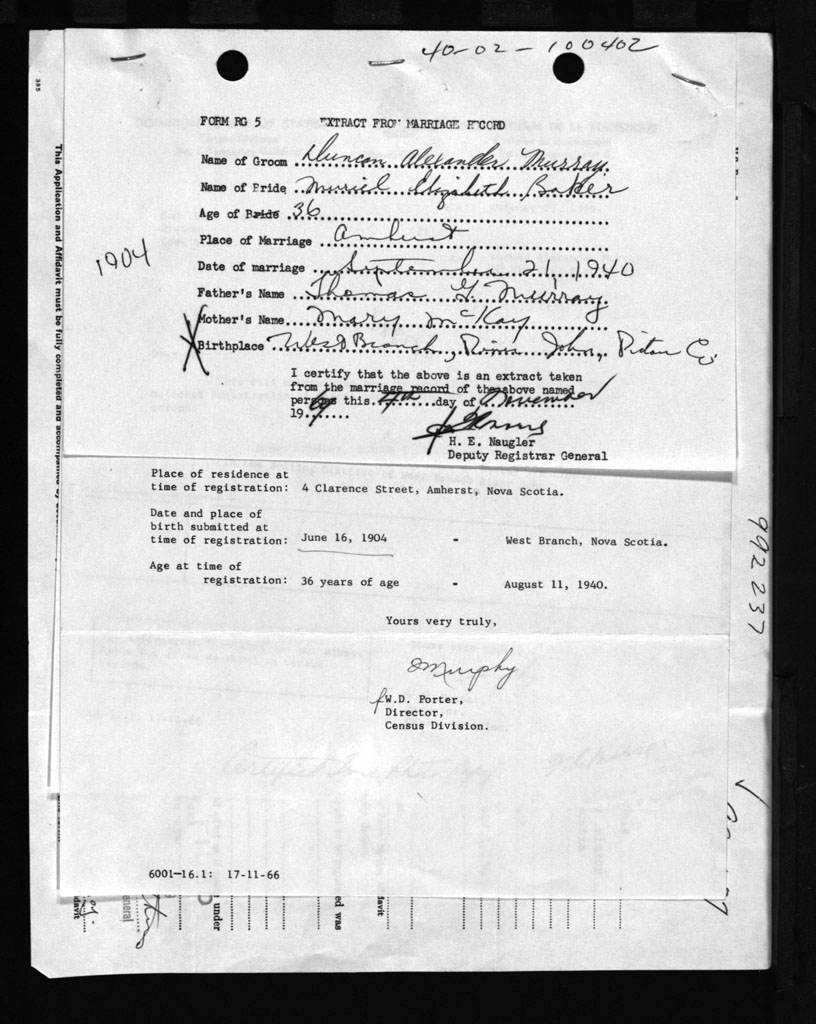 40-02-100402
FORM RG 5 EXTRACT FROM MARRIAGE RECORD
Name of Groom Duncan Alexander Murray
Name of Bride Muriel Elizabeth Baker
Age of Bride 36
Place of Marriage Amherst
1904
Date of marriage September 21, 1940
Father's Name Thomas G. Murray
Mother's Name Mary McKay
X Birthplace West Branch, River John, Pictou Co.
I certify that the above is an extract taken
from the marriage record of the above named
persons this 4th day of November
19
H. E. Naugler
Deputy Registrar General
Place of residence at
time of registration: 4 Clarence Street, Amherst, Nova Scotia.
Date and place of
birth submitted at
time of registration: June 16, 1904 - West Branch, Nova Scotia.
Age at time of
registration: 36 years of age - August 11, 1940.
Yours very truly,
Murphy
f W.D. Porter,
Director,
Census Division.
Certified True Photo Copy
6001-16.1: 17-11-66
385
This Application and Affidavit must be fully completed and accompanied by
992237
under
ed was
davit